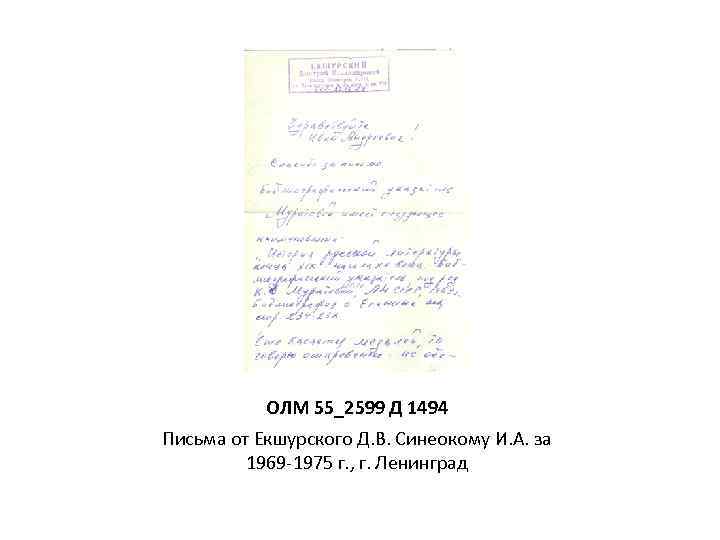 ЕКШУРСКИЙ
Дмитрий Владимирович
Здравствуйте
Иван Андреевич!
Спасибо за письмо.
Библиографический указатель
Муратовой имеет следующее
наименование:
"История русской литературы
конца XIX начала XX века. Биб-
лиографический указатель, под ред
К.Д. Муратовой, АН СССР 1963г.
Библиография о
стр. 234-236
Что касается медалей, то
говорю откровенно - не
ОЛМ 55_2599 Д 1494
Письма от Екшурского Д.В. Синеокому И.А. за
1969-1975 г. , г. Ленинград